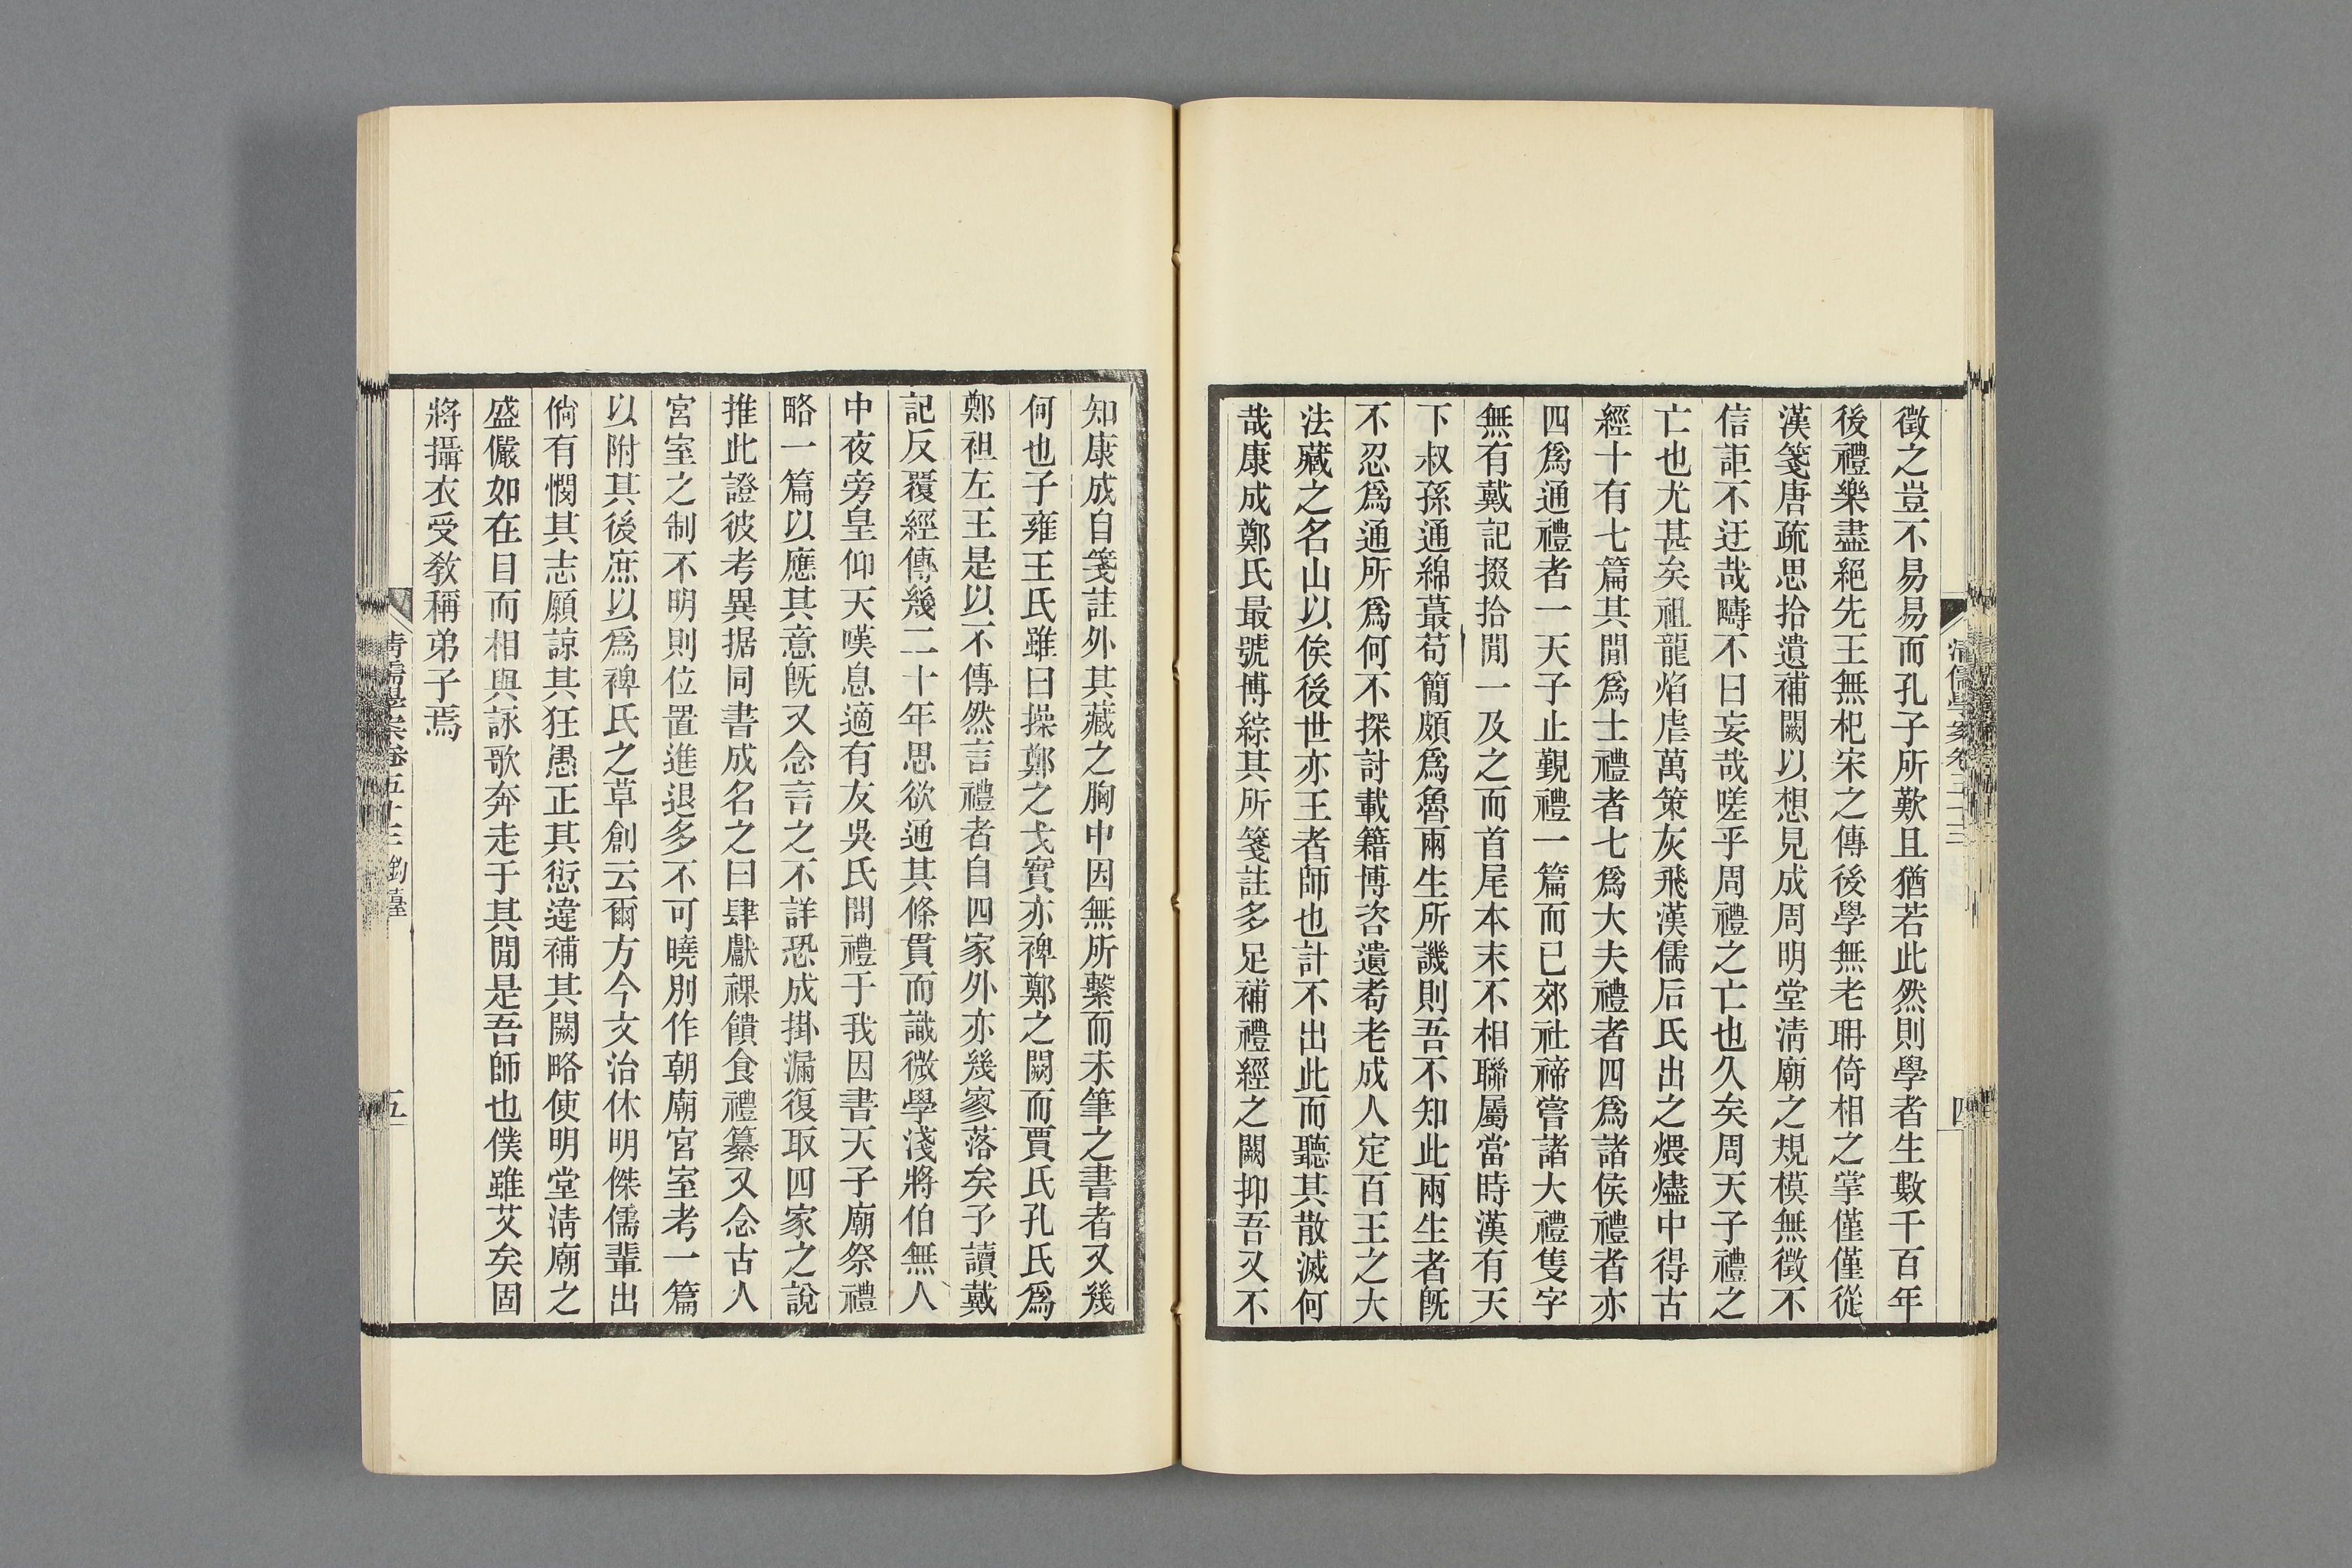 徵之豈不易易而孔子所歎且猶若此然則學者生數千百年
後禮樂盡絕先王無杞宋之傳後學無老聃倚相之掌僅僅從
漢箋唐疏思拾遺補闕以想見成周明堂淸廟之規模無徵不
信詎不迂哉疇不曰妄哉嗟乎周禮之亡也久矣周天子禮之
亡也尤甚矣祖龍焰虐萬策灰飛漢儒后氏出之煨燼中得古
經十有七篇其閒爲士禮者七爲大夫禮者四爲諸侯禮者亦
四爲通禮者一天子止覲禮一篇而已郊社禘嘗諸大禮隻字
無有戴記掇拾閒一及之而首尾本末不相聯屬當時漢有天
下叔孫通綿蕞苟簡頗爲魯兩生所譏則吾不知此兩生者旣
不忍爲通所爲何不探討載籍博咨遺耉老成人定百王之大
法藏之名山以俟後世亦王者師也計不出此而聽其散滅何
哉康成鄭氏最號博綜其所箋註多足補禮經之闕抑吾又不
淸儒學案卷五十三
四
知康成自箋註外其藏之胸中因無所繫而未筆之書者又幾
何也子雍王氏雖曰操鄭之戈實亦裨鄭之闕而賈氏孔氏爲
鄭祖左王是以不傳然言禮者自四家外亦幾寥落矣予讀戴
記反覆經傳幾二十年思欲通其條貫而識微學淺將伯無人
中夜旁皇仰天嘆息適有友吳氏問禮于我因書天子廟祭禮
略一篇以應其意旣又念言之不詳恐成掛漏復取四家之說
推此證彼考異据同書成名之曰肆獻祼饋食禮纂又念古人
宮室之制不明則位置進退多不可曉別作朝廟宮室考一篇
以附其後庶以爲裨氏之草創云爾方今文治休明傑儒輩出
倘有憫其志願諒其狂愚正其愆違補其闕略使明堂淸廟之
盛儼如在目而相與詠歌奔走于其閒是吾師也僕雖艾矣固
將攝衣受敎稱弟子焉
淸儒學案卷五十三 釣臺
五